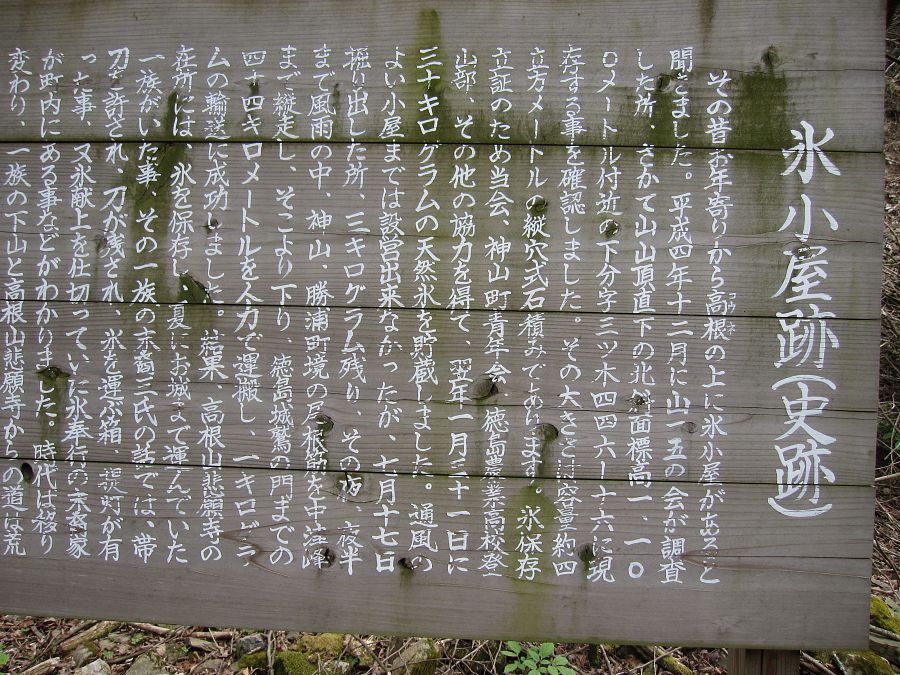 氷小屋跡(史跡)
その昔お年寄りから高根の上に氷小屋があること
コウネ
聞きました。平成四年十二月に山一五の会が調査
した所、さかて山山頂直下の北斜面標高一、一〇
〇メートル付近の下分字三ッ木四四六ー十六に現
存する事を確認しました。その大きさは容量約四
立方メートルの縦穴式石積みであります。氷保存
立証のため当会、神山町青年会、徳島農業高校登
山部、その他の協力を得て、翌年一月三十一日に
三十キログラムの天然氷を貯蔵しました。通風の
よい小屋までは設営出来なかったが、七月十七日
掘り出した所、三キログラム残り、その夜、夜半
まで風雨の中、神山、勝浦町境の尾根筋を中津峰
まで縦走し、そこより下り、徳島城鷲の門までの
四十四キロメートルを人力で運搬し、一キログラ
ムの輸送に成功しました。結果、高根山悲願寺の
在所には、氷を保存し、夏にお城まで運んでいた
一族がいた事、その一族の末裔三氏の話では、帯
刀を許され、刀が残され、氷を運ぶ箱、提灯が有
った事、又氷献上を仕切っていた氷奉行の末裔家
が町内にある事などがわかりました。時代は移り
変わり、一族の下山と高根山悲願寺からの道は荒